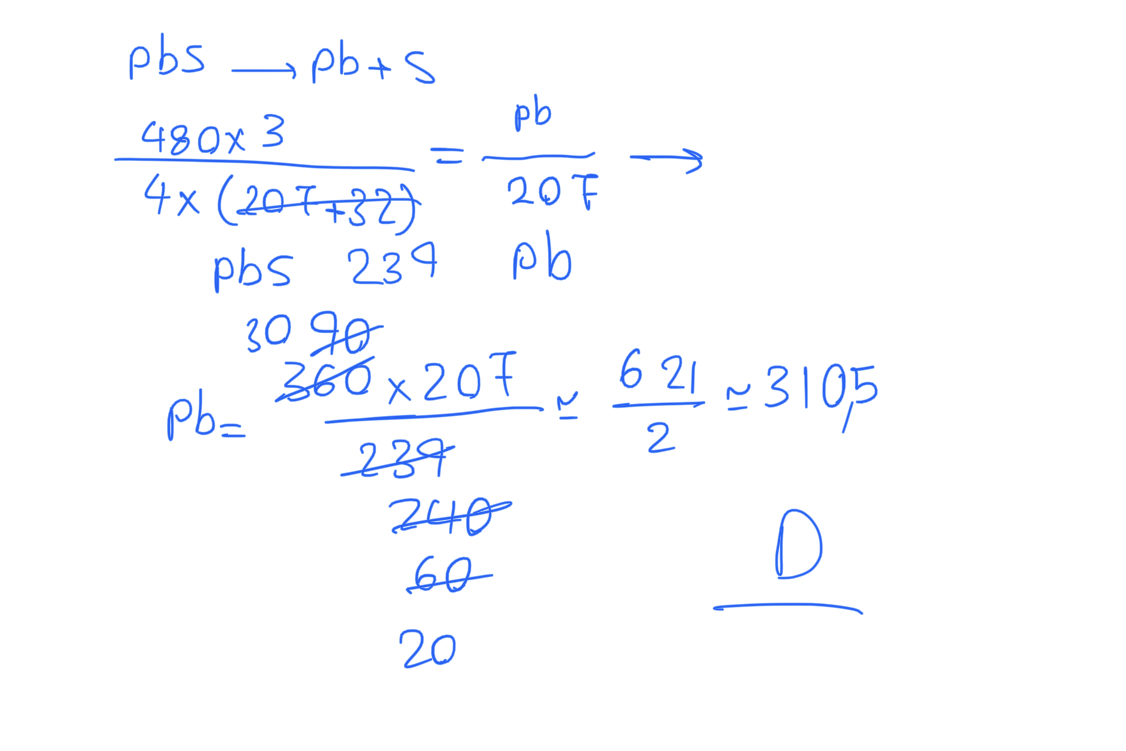 pbs → pb + s
480 x 3 / 4 x (207+32) = pb / 207 →
pbs 239 pb
30 90
pb = 360 x 207 / 239 ≃ 621 / 2 ≃ 310,5
240
60
20
D